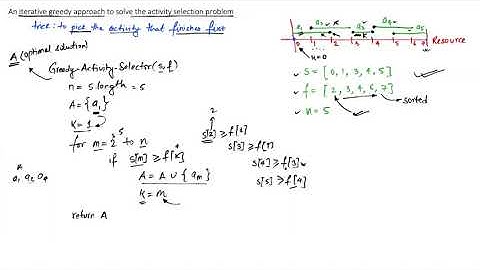 An iterative greedy approach to solve the activity selection problem
to pick the activity that finishes first
A (optimal solution)
Greedy-Activity-Selector (s, f)
n = s.length = 5
A = {a₁}
K = 1
for m = 2 to n
if s[m] ≥ f[K]
A = A ∪ {aₘ}
K = m
return A
A
a₁ a₂ a₄
2
s[2] ≥ f[1]
s[3] ≥ f[2]
s[4] ≥ f[3]
s[5] ≥ f[4]
a₁ a₂ a₃ a₄ a₅
0 1 2 3 4 5 6 7
Resource
S = [0, 1, 3, 4, 5]
f = [2, 3, 4, 6, 7]
sorted
n = 5